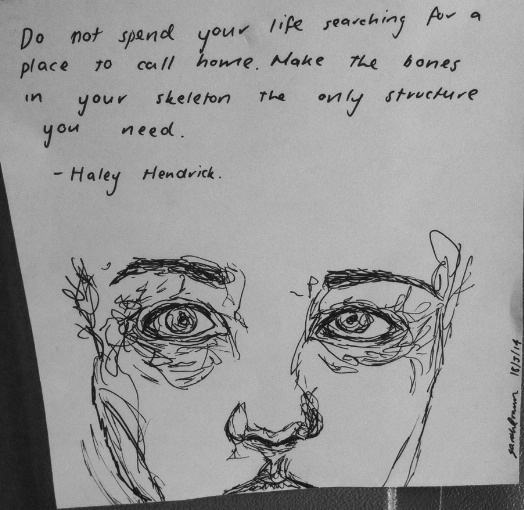 Do not spend your life searching for a
place to call home. Make the bones
in your skeleton the only structure
you need.
- Haley Hendrick.
18/3/14